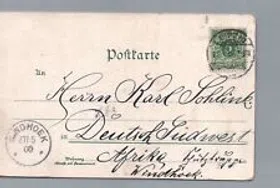 Postkarte
An
Herrn Karl Schlink
in Deutsch Südwest
Afrika
Windhoek.
WINDHOEK
Wohnung